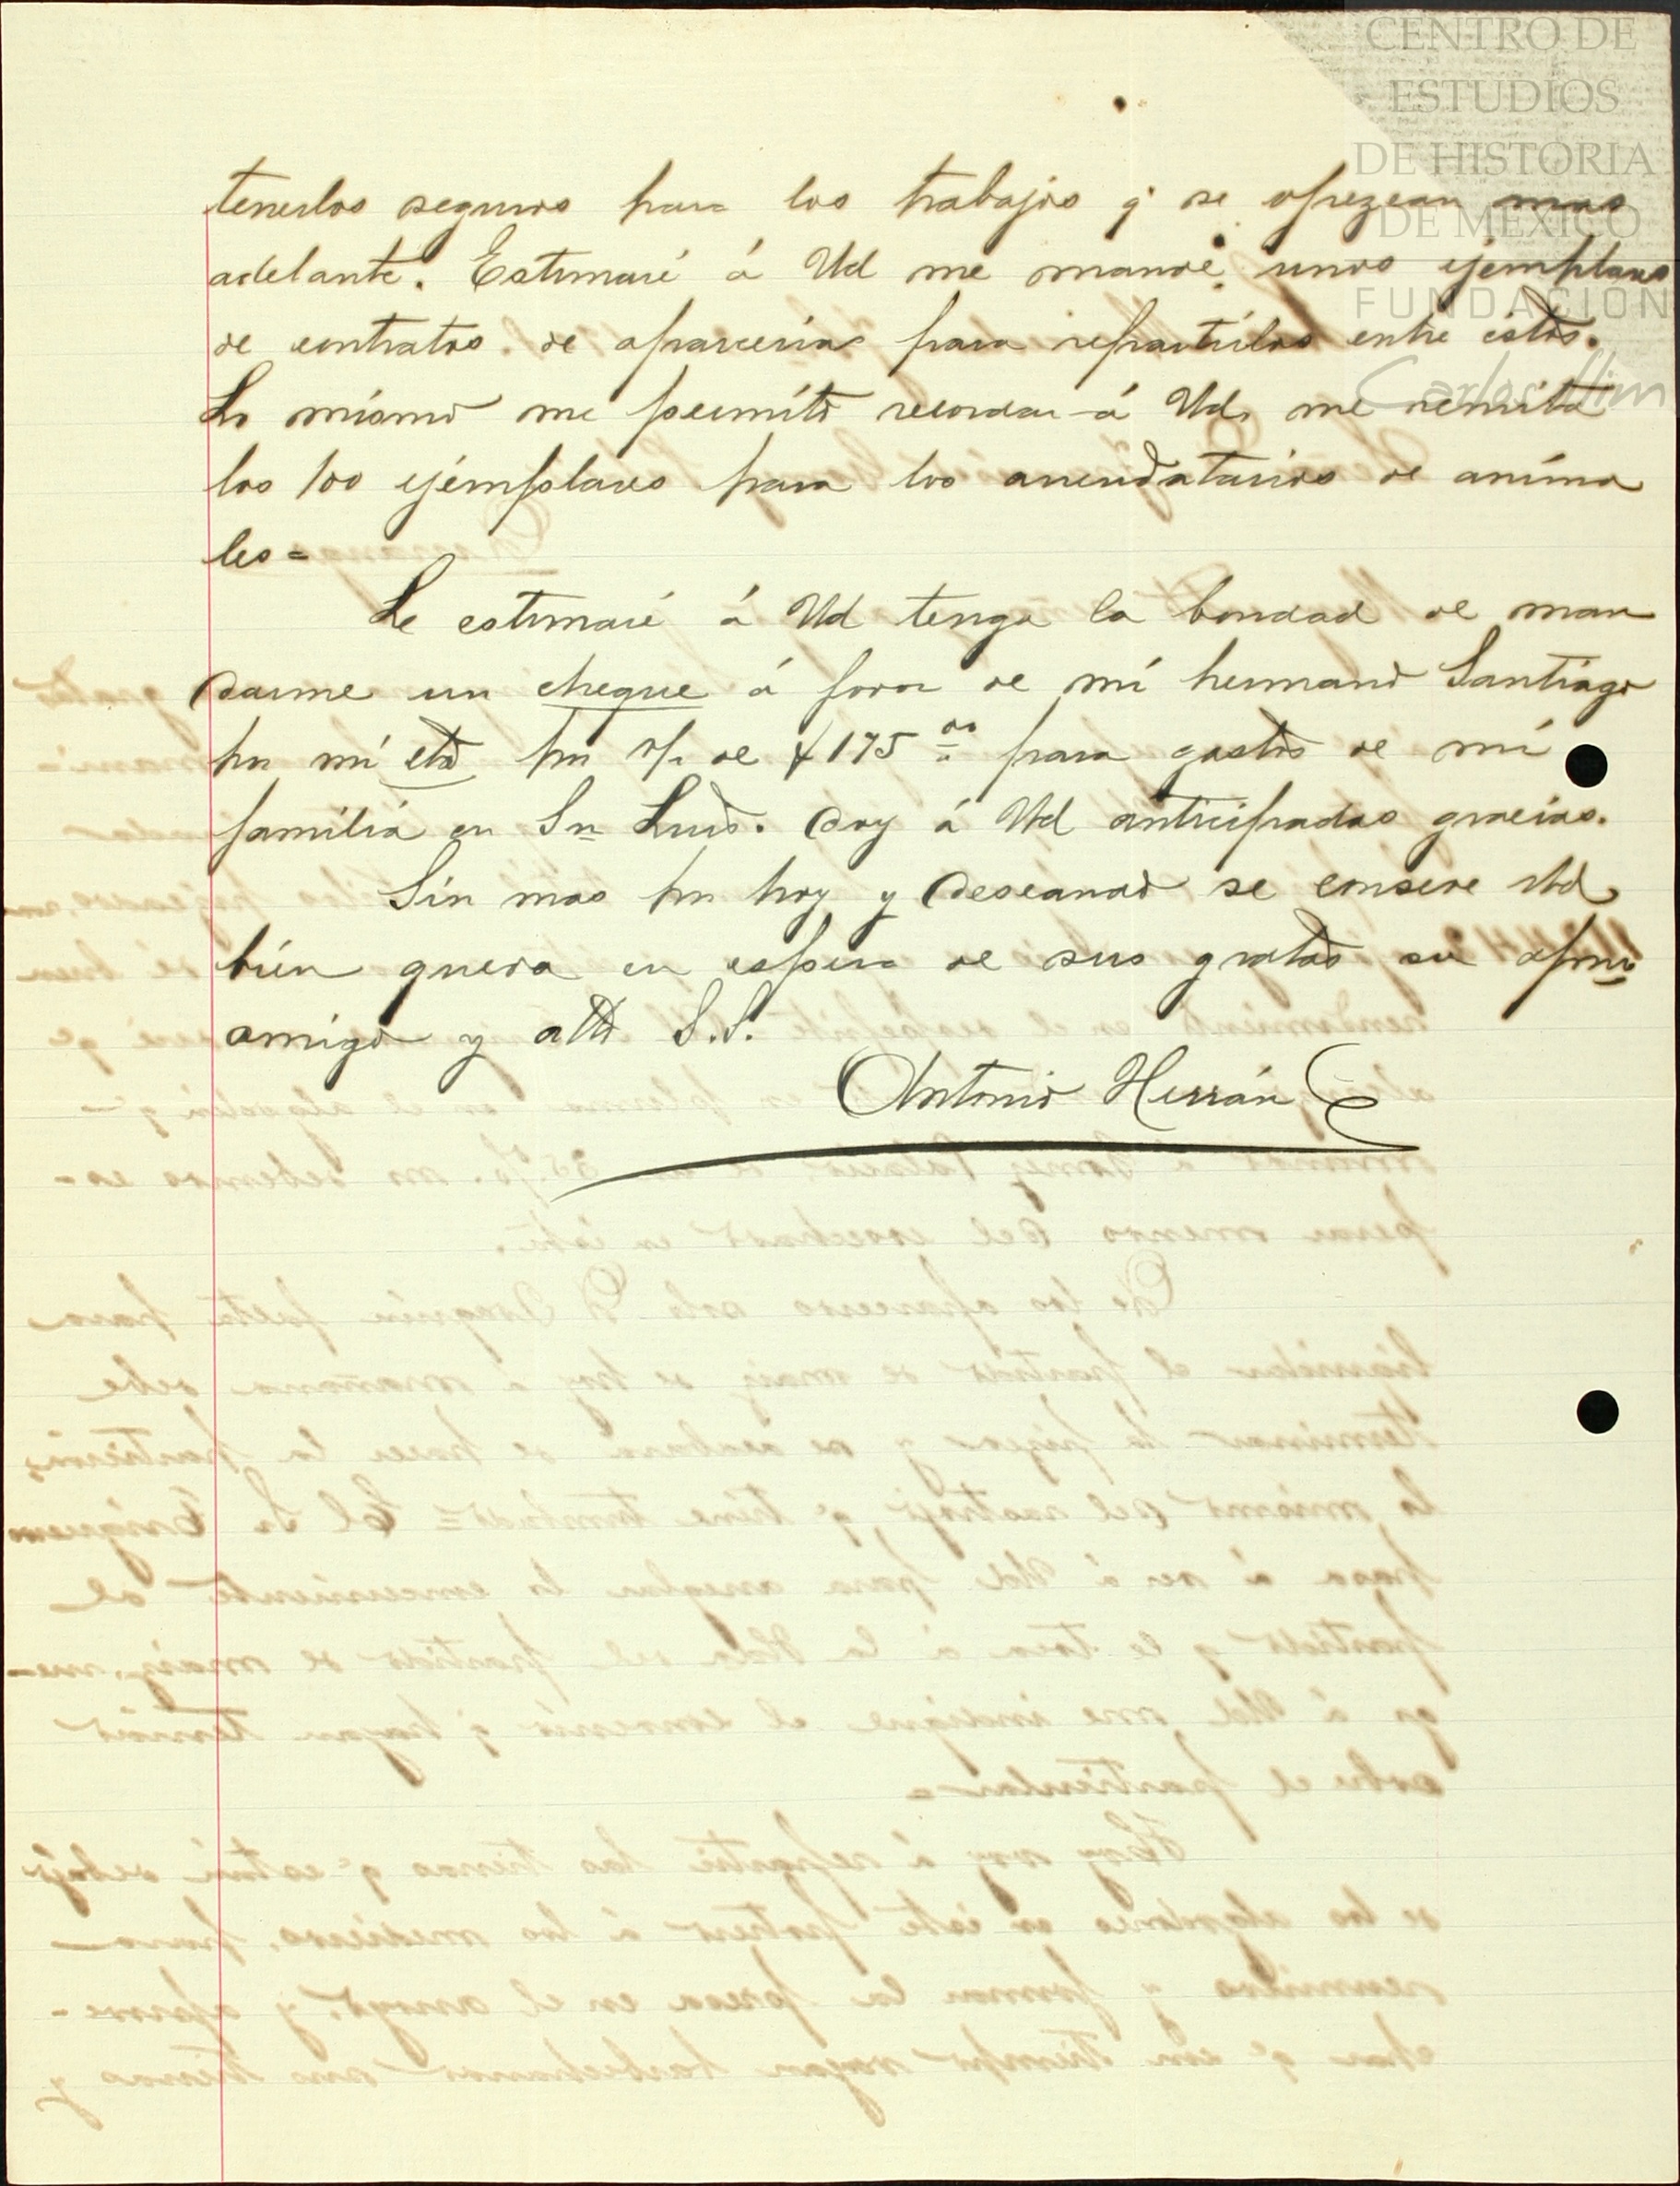 CENTRO DE
ESTUDIOS
DE HISTORIA
DE MEXICO
FUNDACION
Carlos Slim
tenerlos seguros para los trabajos q' se ofrezcan mas
adelante. Estimaré á Ud me mande unos ejemplares
de contratos de aparcería para repartirlos entre estos.
Lo mismo me permito recordar á Ud, me remita
los 100 ejemplares para los arrendatarios de anima
les =
Le estimaré á Ud tenga la bondad de man
darme un cheque á favor de mi hermano Santiago
por mi cta por v/. de $175 oo para gastos de mi
familia en Sn Luis. Doy á Ud anticipadas gracias.
Sin mas por hoy y deseando se conserve Ud
bien queda en espera de sus gratas su afmo
amigo y atto S.S.
Antonio Herrán